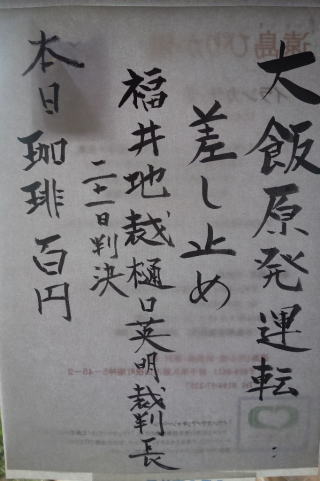 大飯原発運転…
差し止め
福井地裁樋口英明裁判長
二十一日判決
本日珈琲百円